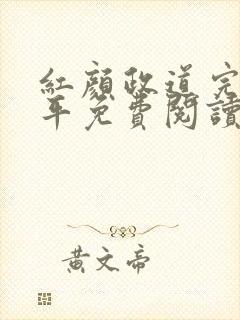 紅顏政道完
免費閱讀
黃文帝